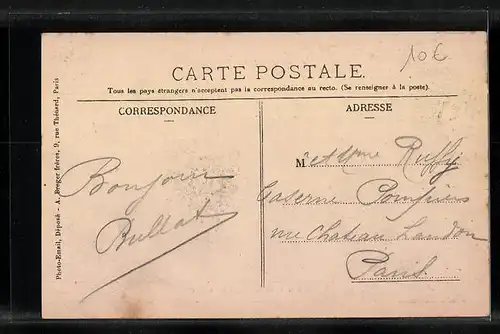 10€
CARTE POSTALE
Tous les pays étrangers n'acceptent pas la correspondance au recto. (Se renseigner à la poste).
CORRESPONDANCE
ADRESSE
Bonjour
Bullat
M et Mme Ruffy
Caserne Pompiers
rue Chateau Landon
Paris
Photo-Email, Déposé - A. Breger frères, 9, rue Thénard, Paris